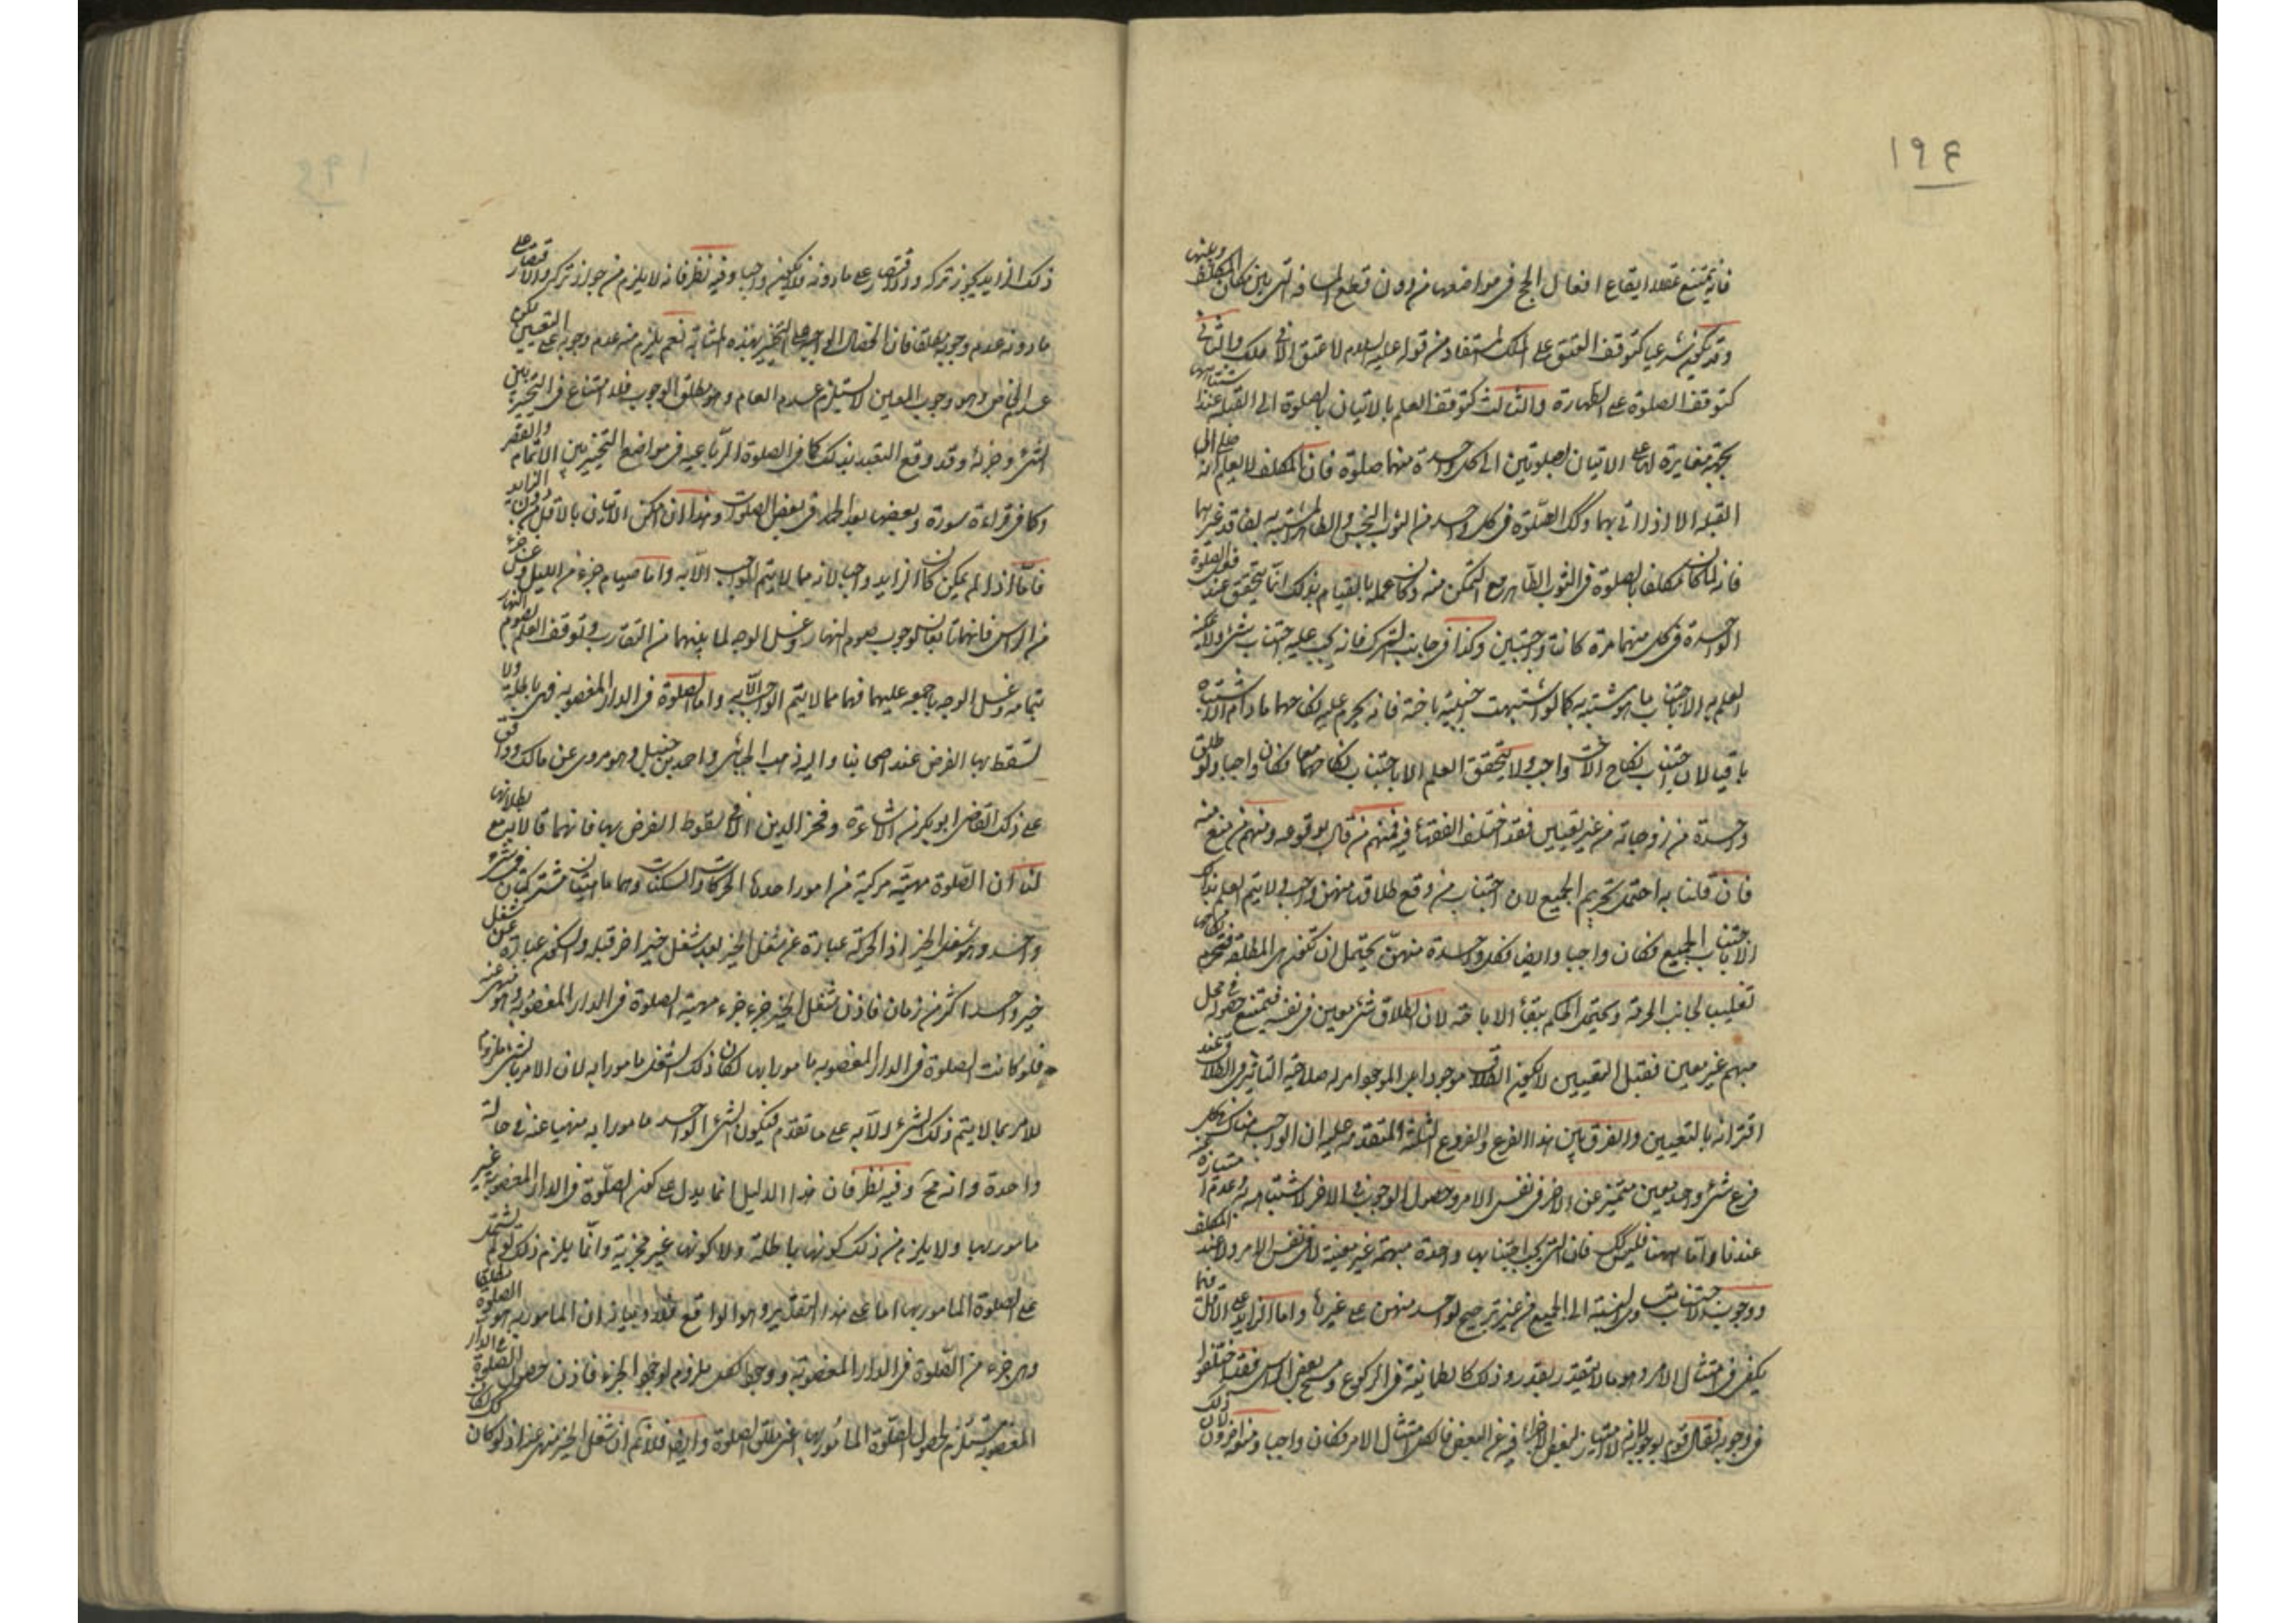 ١٩٤
فانه يمتنع عقلا ايقاع افعال الحج في مواضعها من دون قطع المسافة التي بين مكان المكلف وبينها
وقد تكون شرعيا كتوقف العتق على الملك المستفاد من قوله عليه السلام لا عتق الا في ملك والثاني
كتوقف الصلوة على الطهارة والثالث كتوقف العلم بالاتيان بالصلوة الى القبلة عند اشتباهها
بجهة مغايرة لها على الاتيان بصلوتين الى كل واحدة منهما صلوة فان المكلف لا يعلم انه صلى الى
القبلة الا اذا اتى بهما وكك الصلوة في كل واحد من الثوب النجس والطاهر المشتبه لفاقد غيرهما
فانه لما كان مكلفا بالصلوة في الثوب الطاهر مع التمكن منه وكان علمه بالقيام بذلك انما يتحقق عند فعل الصلوة
الواحدة في كل منهما مرة كانتا واجبتين وكذا في جانب الترك فانه يجب عليه اجتناب شيء ولا يمكنه
العلم به الا باجتناب ما هو مشتبه به كما لو اشتبهت اجنبية باخته فانه يحرم عليه نكاحهما ما دام الاشتباه
باقيا لان اجتناب نكاح الاخت واجب ولا يتحقق العلم الا باجتناب نكاحهما معا فكان واجبا ولو طلق
واحدة من زوجاته من غير تعيين فقد اختلف الفقهاء فيه فمنهم من قال بوقوعه ومنهم من منع منه
فان قلنا به احتمل تحريم الجميع لان اجتناب من وقع طلاقها منهن واجب ولا يتم العلم بذلك
الا باجتناب الجميع فكان واجبا وايضا فكل واحدة منهن يحتمل ان تكون هي المطلقة فتحرم
تغليبا لجانب الحرمة ويحتمل الحكم ببقاء الاباحة لان الطلاق شيء معين في نفسه فيمتنع حصوله في محل
مبهم غير معين فقبل التعيين لا يكون الطلاق موجودا بل الموجود امر له صلاحية التاثير في الطلاق عند
اقترانه بالتعيين والفرق بين هذا الفرع والفروع الثلثة المتقدمة عليه ان الواجب هناك في كل
فرع شيء واحد معين متميز عن الاخر في نفس الامر وحصول الوجوب في الاخر لاشتباهه به وعدم امتيازه عنه
عندنا واما ههنا فليس كك فان التي يجب اجتنابها واحدة مبهمة غير معينة لا في نفس الامر ولا عند المكلف
ووجوب الاجتناب بالنسبة الى الجميع من غير ترجيح لواحد منهن على غيرها واما الزايد على الاقل مما
يكفي في امتثال الامر وهو ما لا يتقدر بقدر وذلك كالطمانينة في الركوع ومسح بعض الراس فقد اختلفوا
في وجوبه فقال قوم بوجوبه لانه لا امتياز لبعض الاجزاء فيه عن البعض فالكل امتثال الامر فكان واجبا ومنعه اخرون لان ذلك
ذلك الزايد يجوز تركه والاقتصار على ما دونه فلا يكون واجبا وفيه نظر فانه لا يلزم من جواز تركه والاقتصار على
ما دونه عدم وجوبه مطلقا فان الخصال الواجبة على التخيير بهذه المثابة نعم يلزم منه عدم وجوبه على التعيين لكن
عدم الخاص وهو وجوب المعين لا يستلزم عدم العام وهو مطلق الوجوب فلا امتناع في التخيير بين
الشيء وجزئه وقد وقع التعبد بذلك كما في الصلوة الرباعية في مواضع التخيير بين الاتمام والقصر
وكما في قراءة سورة وبعضها بعد الحمد في بعض الصلوات وهذا ان امكن الاتيان بالاقل دون الزايد
فاما اذا لم يمكن كان الزايد واجبا لانه مما لا يتم الواجب الا به واما صيام جزء من الليل وغسل جزء
من الراس فانهما تابعان لوجوب صوم النهار وغسل الوجه لما بينهما من التقارب وتوقف العلم بصوم النهار
بتمامه وغسل الوجه باجمعه عليهما فهما مما لا يتم الواجب الا به واما الصلوة في الدار المغصوبة فهي باطلة ولا
تسقط بها الفرض عند اصحابنا واليه ذهب الجبائي واحمد بن حنبل وهو مروي عن مالك ووافق
على ذلك القاضي ابو بكر من الاشاعرة وفخر الدين الا في سقوط الفرض بها فانهما قالا به مع بطلانها
لنا ان الصلوة مهية مركبة من امور احدها الحركات والسكنات وهما ماهيتان مشتركتان في شيء
واحد وهو شغل الحيز اذ الحركة عبارة عن شغل الحيز بعد شغل حيز اخر قبله والسكون عبارة عن شغل
حيز واحد اكثر من زمان فاذن شغل الحيز جزء جزء مهية الصلوة في الدار المغصوبة وهو منهي عنه
فلو كانت الصلوة في الدار المغصوبة مامورا بها لكان ذلك الشغل مامورا به لان الامر بالشيء ملزوما
للامر بما لا يتم ذلك الشيء الا به على ما تقدم فيكون الشيء الواحد مامورا به منهيا عنه في حالة
واحدة وانه مح وفيه نظر فان هذا الدليل انما يدل على كون الصلوة في الدار المغصوبة غير
مامور بها ولا يلزم من ذلك كونها باطلة ولا كونها غير مجزية وانما يلزم ذلك لو لم تشتمل
على الصلوة المامور بها اما على هذا التقدير وهو الواقع فلا وبيانه ان المامور به هو مطلق الصلوة
وهي جزء من الصلوة في الدار المغصوبة ووجود الكل ملزوم لوجود الجزء فاذن حصول الصلوة في الدار
المغصوبة مستلزم لحصول الصلوة المامور بها اعني مطلق الصلوة وايضا فلا نم ان شغل الحيز منهي عنه اذ لو كان كك لكان